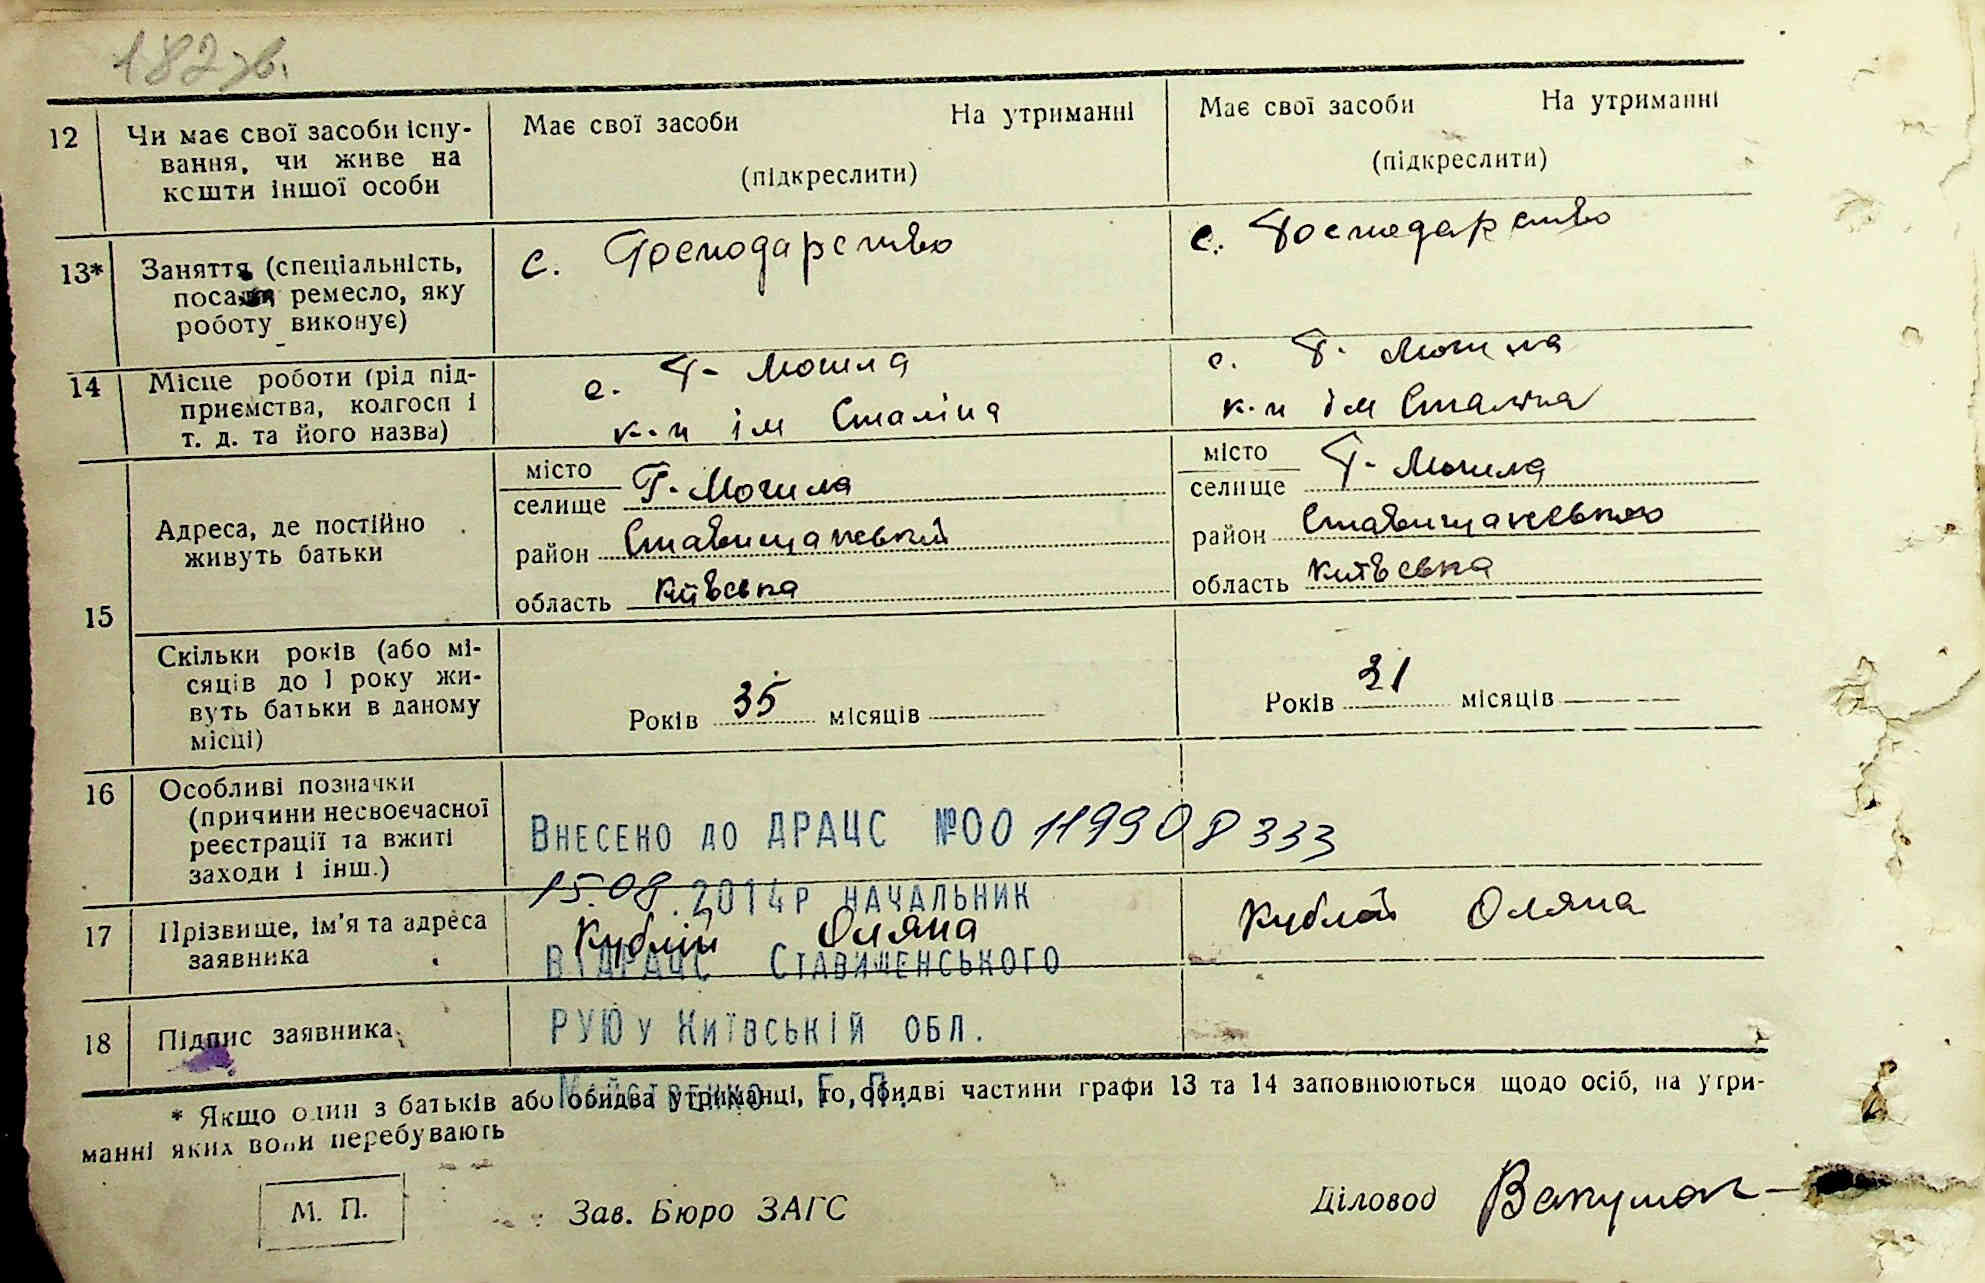 182 зв.
12 Чи має свої засоби існу-
вання, чи живе на
кошти іншої особи
Має свої засоби На утриманні
(підкреслити)
Має свої засоби На утриманні
(підкреслити)
13* Заняття (спеціальність,
посада, ремесло, яку
роботу виконує)
с. Господарство
с. Господарство
14 Місце роботи (рід під-
приємства, колгосп і
т. д. та його назва)
с. Г- Могила
к-п ім Сталіна
с. Г- Могила
к-п ім Сталіна
15 Адреса, де постійно
живуть батьки
місто
селище Г-Могила
район Ставищанський
область Київська
місто
селище Г- Могила
район Ставищанського
область Київська
Скільки років (або мі-
сяців до 1 року жи-
вуть батьки в даному
місці)
Років 35 місяців
Років 21 місяців
16 Особливі позначки
(причини несвоєчасної
реєстрації та вжиті
заходи і інш.)
Внесено до ДРАЦС №00 119908333
15.08.2014р начальник
17 Прізвище, ім'я та адреса
заявника
Кублій Оляна
Кублій Оляна
ВДРАЦС Ставищенського
18 Підпис заявника
РУЮ у Київській обл.
Майстренко Г.П.
* Якщо один з батьків або обидва утриманці, то обидві частини графи 13 та 14 заповнюються щодо осіб, на утри-
манні яких вони перебувають
М. П.
Зав. Бюро ЗАГС
Діловод